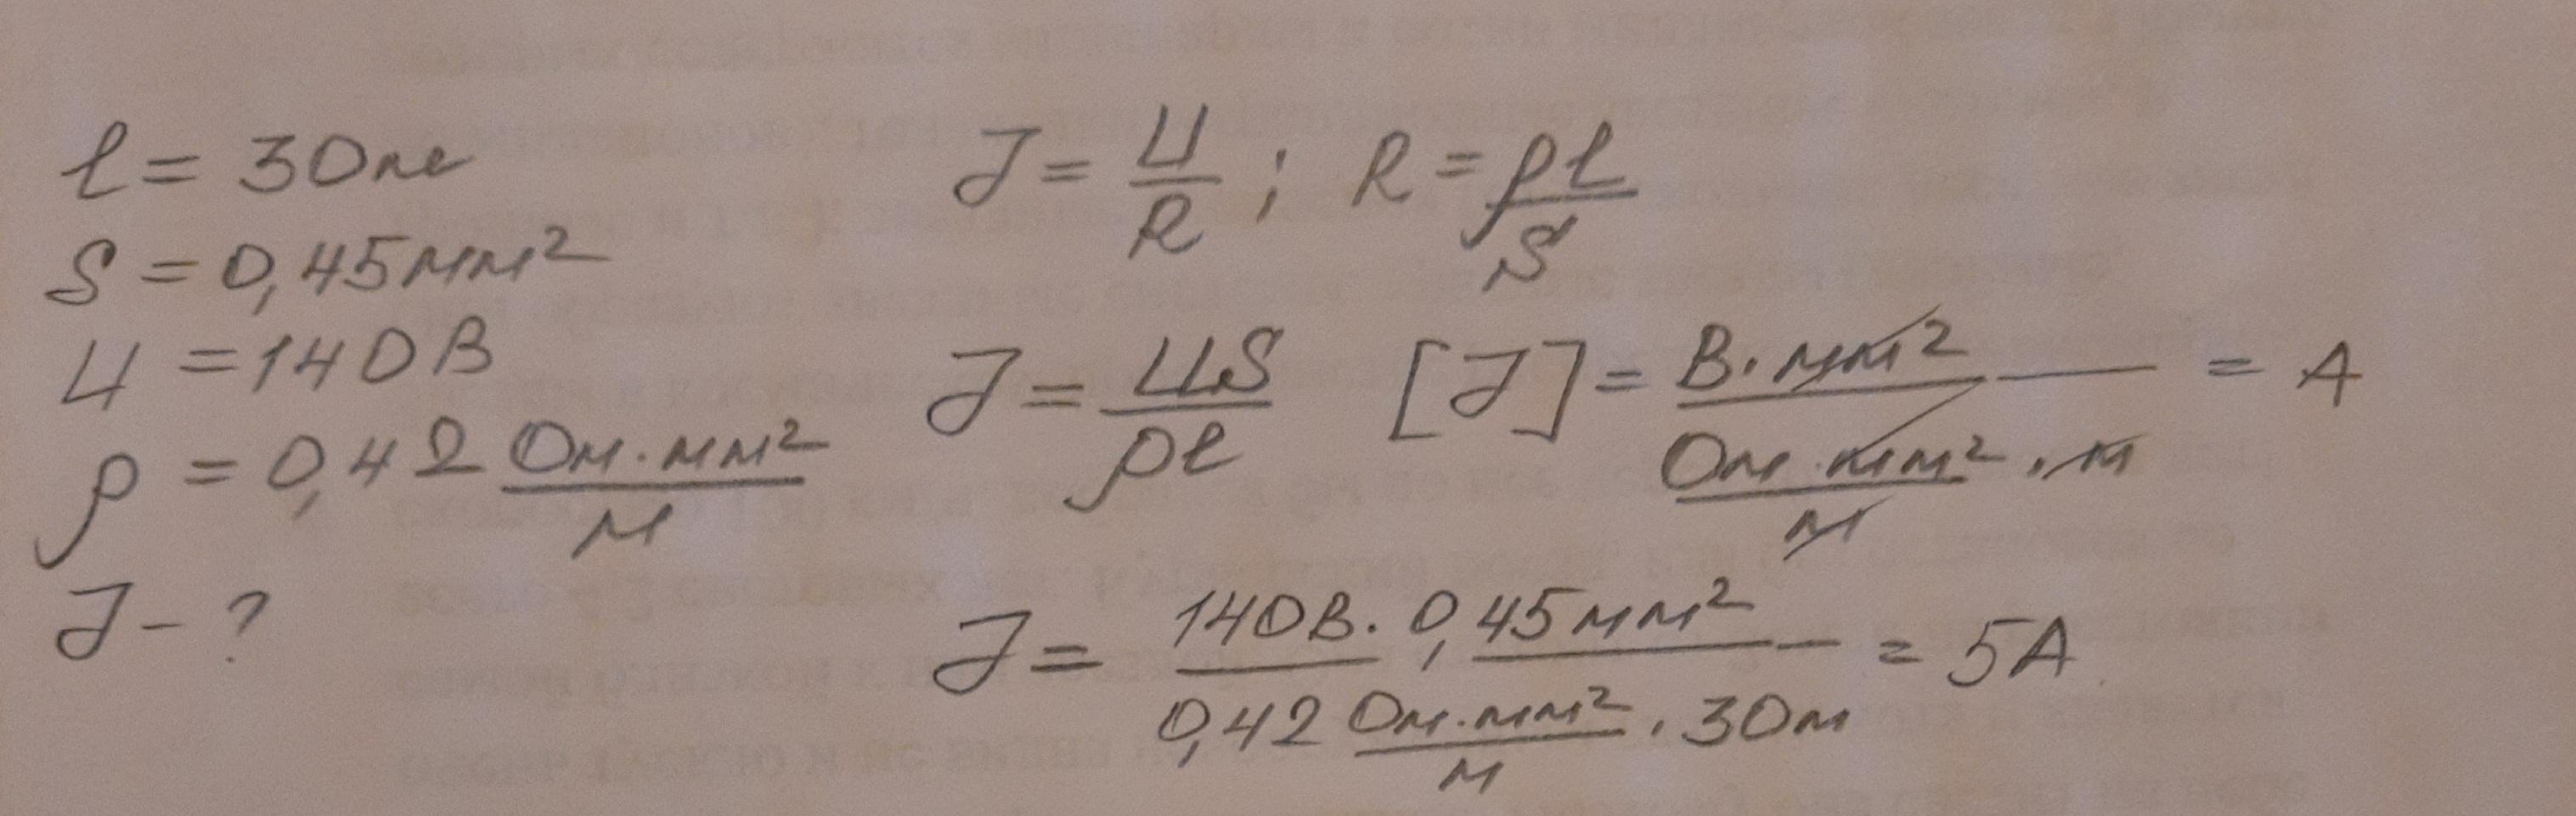 l = 30м
S = 0,45мм²
U = 140В
ρ = 0,42 Ом·мм²/м
J - ?
J = U/R ; R = ρl/S
J = US/ρl [J] = В·мм²/(Ом·мм²/м · м) = А
J = 140В · 0,45мм²/(0,42 Ом·мм²/м · 30м) = 5А